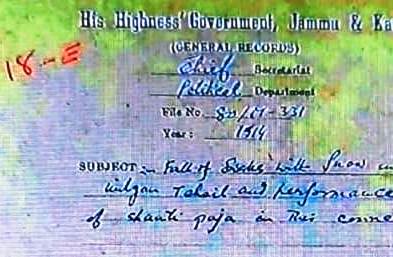 His Highness' Government, Jammu & Ka
(GENERAL RECORDS)
18-E
Chief Secretariat
Political Department
File No
Year: 1914
SUBJECT:- Fall of Snakes with Snow
Tehsil and performance
of shanti puja in this conne